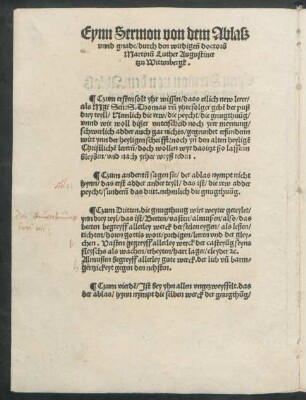 Eynn Sermon von dem Ablasz
vnnd gnade/ durch den wirdigen doctorn
Martinū Luther Augustiner
tzu Wittenbergk.
¶ Czum ersten solt yhr wissen/ das etlich new lerer/
als Mgr̄ Sen̄. S. Thomas vn̄ yhre folger gebē der pusz
drey teyll/ Nemlich die rew/ die peycht/ die gnugthuūg/
vnnd wie woll diszer vnterscheid noch yrer meynung/
schwerlich adder auch gar nichts/ gegrundet erfunden
wirt ynn der heyligen schrifft/ noch yn den alten heyligē
Christlichē lerern/ doch wollen wyr das itzt szo lassen
bleyben/ vnd nach yrher weysz reden.
¶ Czum andernn sagen sie/ der ablas nympt nicht
hynn/ das erst adder ander teyll/ das ist/ die rew adder
peycht/ sundern das dritt/ nehmlich die gnugthuūg.
¶ Czum Dritten. die gnugthuung wirt weyter geteylet/
ynn drey teyl/ das ist/ Beten/ vasten/ almusen/ alszo/ das
beten begreyff allerley werck der seelen eygen/ als leszen/
tichten/ horen gottis wort/ predigen/ leren vnd der gleychen.
Vasten begreyff allerley werck der casteyūg seyns
fleyschs als wachen/ erbeyten/ hart lager/ cleyder ⁊c.
Almusen begreyff allerley gute werck der lieb vn̄ barmhertzickeyt
gegen den nehsten.
¶ Czum vierdē/ Ist bey yhn allen vngezweyffelt. das
der ablas/ hynn nympt die selben werck der gnugthuūg/